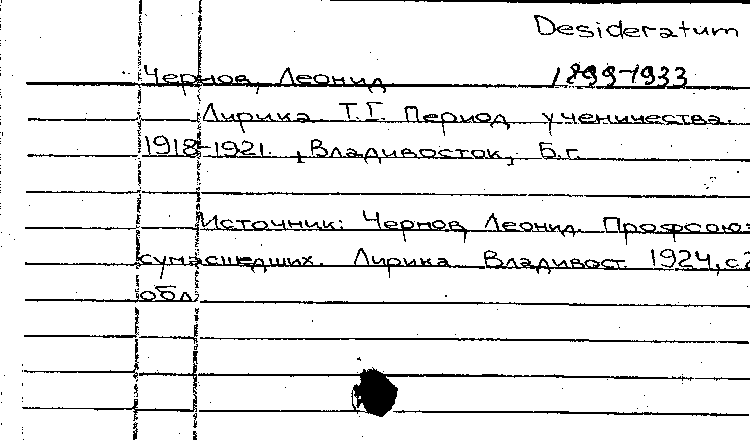 Desideratum
Чернов, Леонид 1899-1933
Лирика Т.I. Период ученичества.
1918-1921. , Владивосток, Б.г.
Источник: Чернов, Леонид. Профсоюз
сумасшедших. Лирика Владивост. 1924, с2
обл.